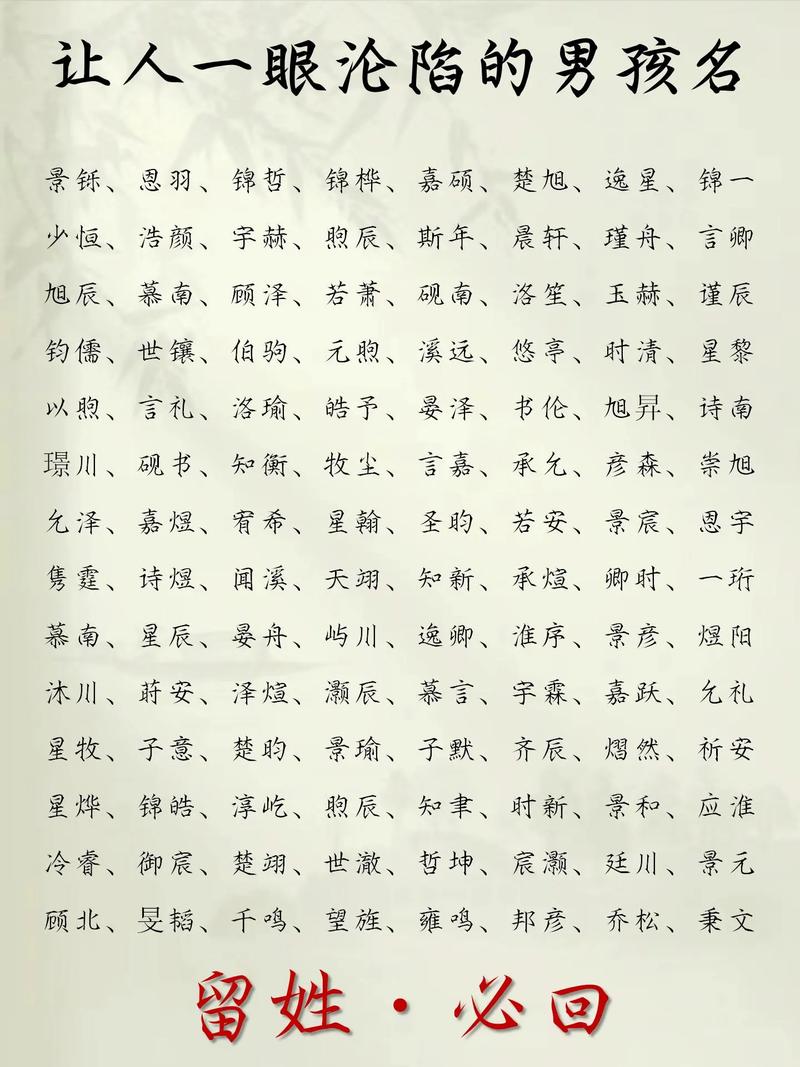 让人一眼沦陷的男孩名
景铄、恩羽、锦哲、锦桦、嘉硕、楚旭、逸星、锦一
少恒、浩颜、宇赫、煦辰、斯年、晨轩、瑾舟、言卿
旭辰、慕南、顾泽、若萧、砚南、洛笙、玉赫、谨辰
钧儒、世镶、伯驹、元煦、溪远、悠亭、时清、星黎
以煦、言礼、洛瑜、皓予、晏泽、书伦、旭昇、诗南
璟川、砚书、知衡、牧尘、言嘉、承允、彦森、崇旭
允泽、嘉煜、宥希、星翰、圣昀、若安、景宸、恩宇
隽霆、诗煜、闻溪、天翊、知新、承煊、卿时、一珩
慕南、星辰、晏舟、屿川、逸卿、淮序、景彦、煜阳
沐川、莳安、泽煊、灏辰、慕言、宇霖、嘉跃、允礼
星牧、子意、楚昀、景瑜、子默、齐辰、熠然、祈安
星烨、锦皓、淳屹、煦辰、知聿、时新、景和、应淮
冷睿、御宸、楚翊、世澈、哲坤、宸灏、廷川、景元
顾北、旻韬、千鸣、望旌、雍鸣、邦彦、乔松、秉文
留姓·必回